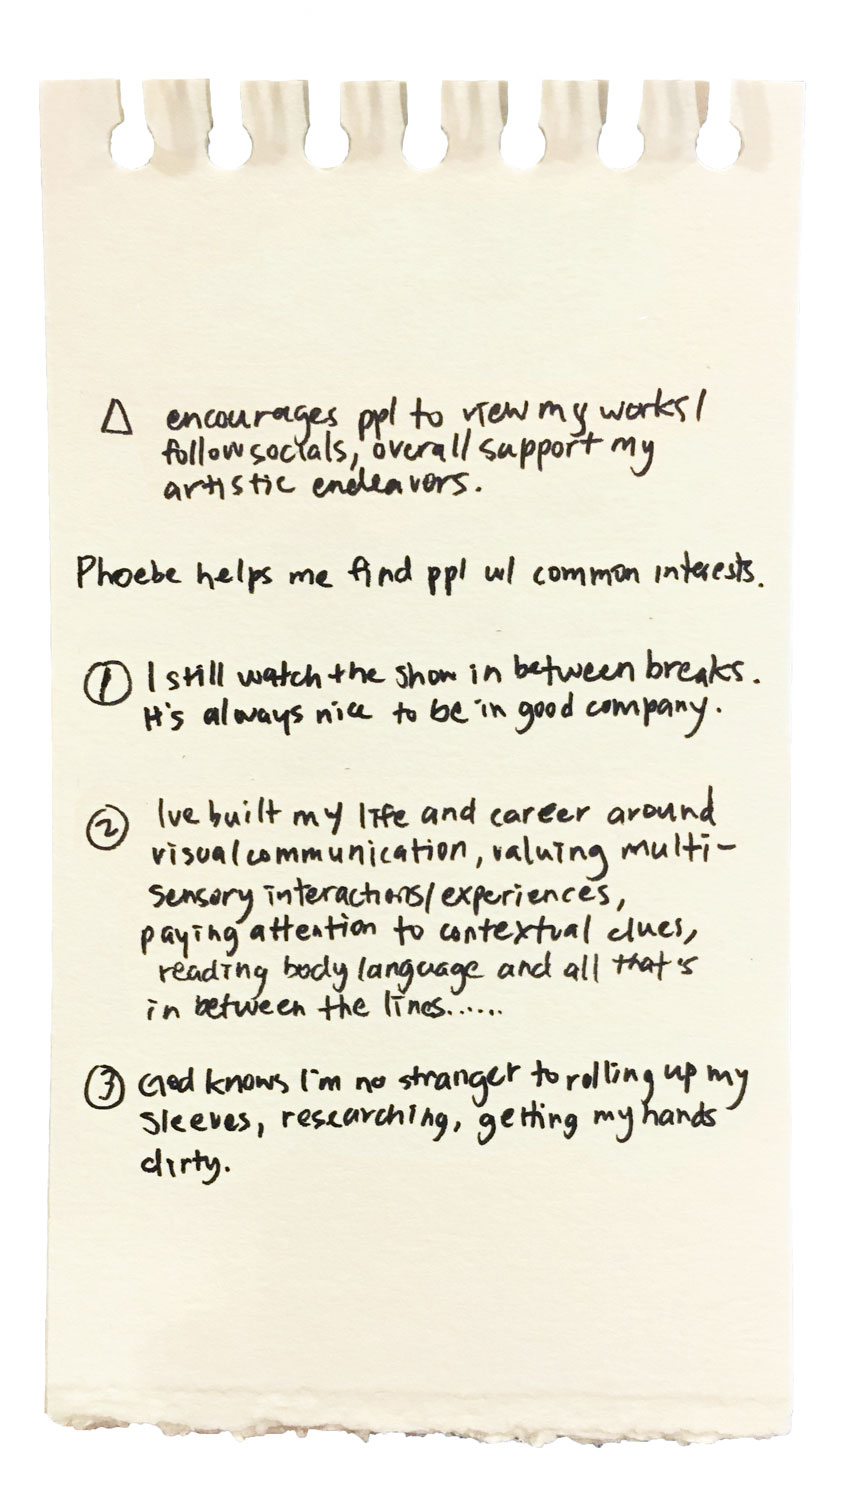 △ encourages ppl to view my works/
follow socials, overall support my
artistic endeavors.
Phoebe helps me find ppl w/ common interests.
① I still watch the show in between breaks.
It's always nice to be in good company.
② Ive built my life and career around
visual communication, valuing multi-
sensory interactions/experiences,
paying attention to contextual clues,
reading body language and all that's
in between the lines......
③ God knows I'm no stranger to rolling up my
sleeves, researching, getting my hands
dirty.